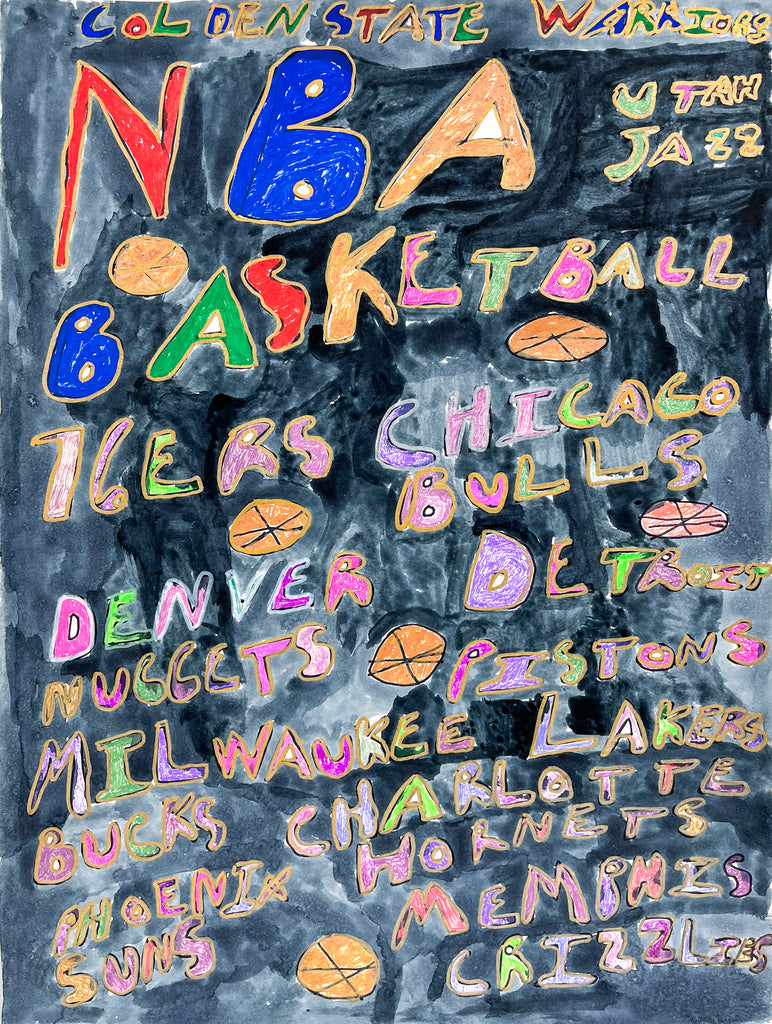 COLDEN STATE WARRIORS
NBA
UTAH
JAZZ
BASKETBALL
76ERS
CHICAGO
BULLS
DENVER
NUGGETS
DETROIT
PISTONS
MILWAUKEE
BUCKS
LAKERS
CHARLOTTE
HORNETS
PHOENIX
SUNS
MEMPHIS
CRIZZLIES